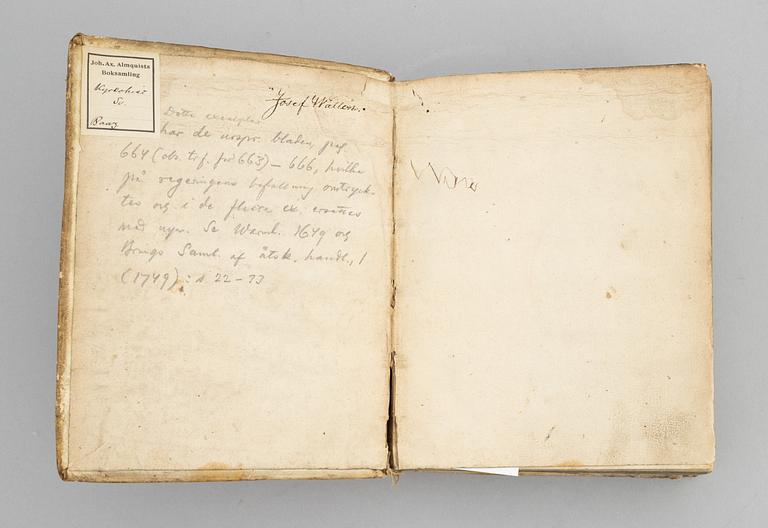 Joh. Ax. Almquists
Boksamling
Kyrkohist
Sv.
Baaz
Josef Wallén.
Detta exemplar
har de urspr. bladen, pag
664 (ob. tr.f. för 663) – 666, hvilka
på regeringens befallning omtryck-
tes och i de flesta ex. ersattes
med nya. Se Warmh. 1649 och
Brings Saml. af åtsk. handl., 1
(1749): s. 22–73